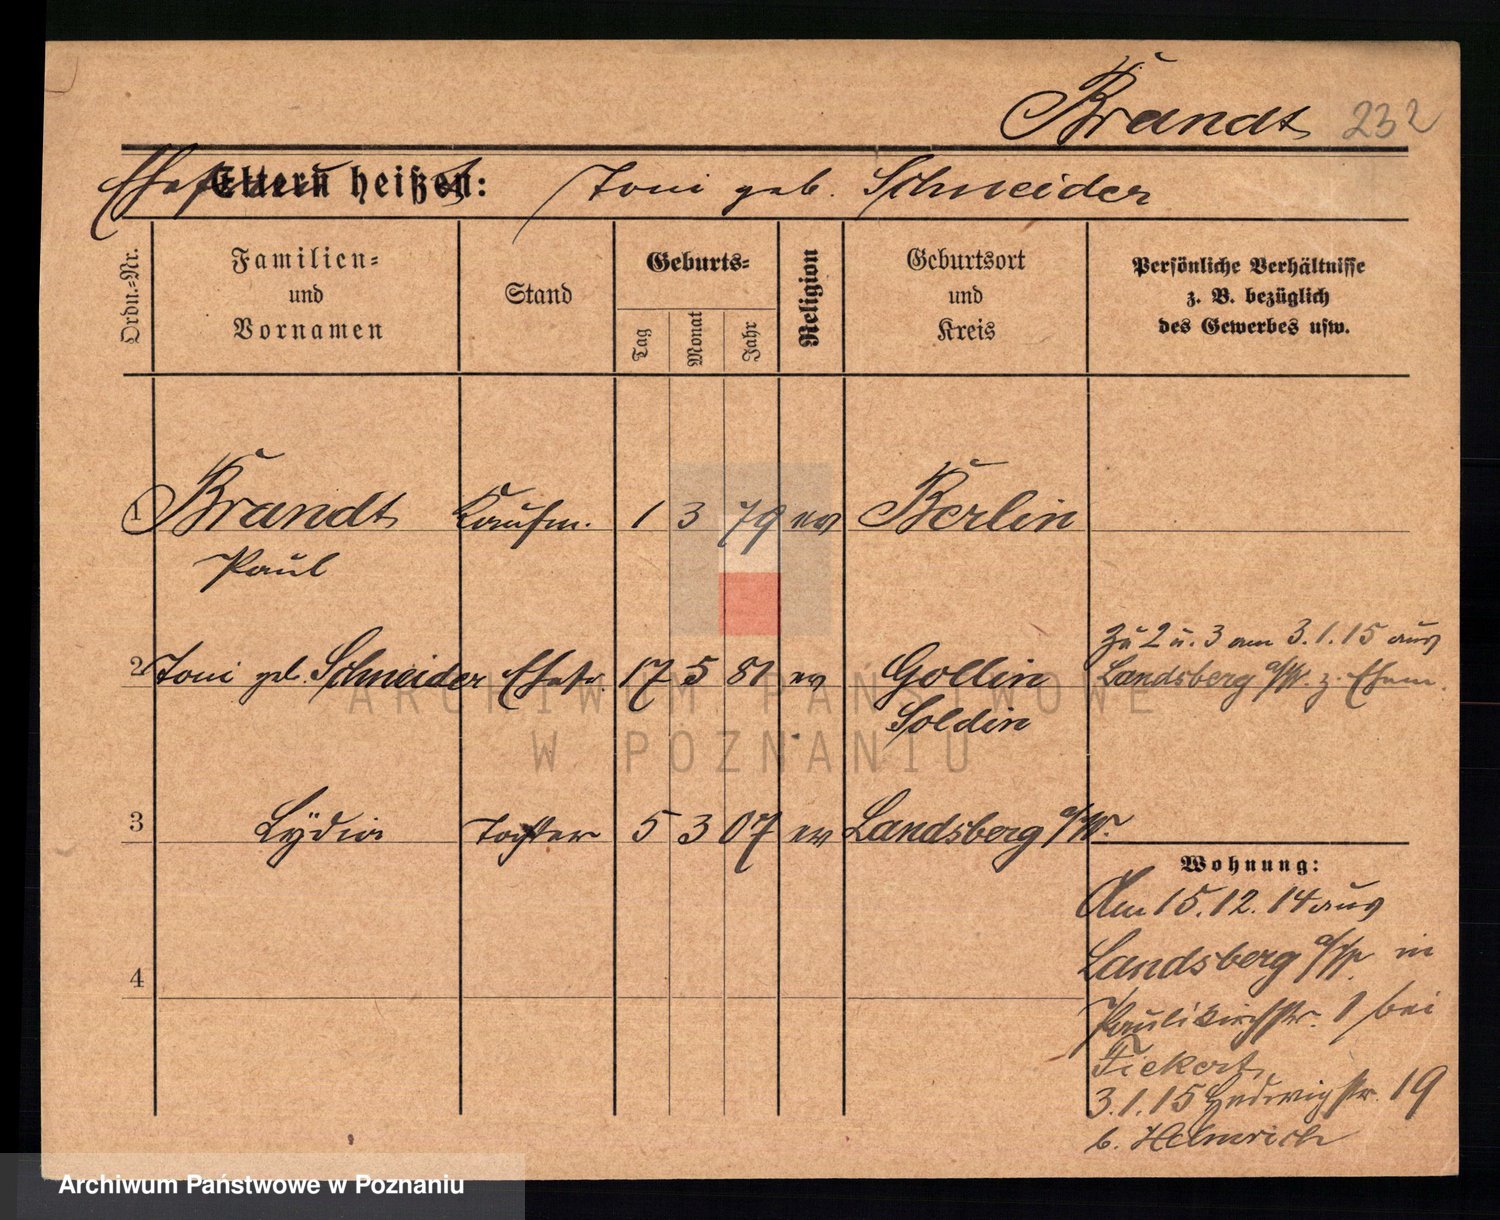 Brandt 232
Eltern heißen: Toni geb. Schneider
Ordn.-Nr.
Familien-
und
Vornamen
Stand
Geburts-
Tag
Monat
Jahr
Religion
Geburtsort
und
Kreis
Persönliche Verhältnisse
z. B. bezüglich
des Gewerbes usw.
1 Brandt Kaufm. 1 3 79 ev Berlin
Paul
Zu 2 u. 3 am 3.1.15 aus
2 Toni geb. Schneider Ehefr. 17 5 81 ev Gollin Landsberg a/W. z. Ehem.
Soldin
3 Lydia Tochter 5 3 07 ev Landsberg a/W.
Wohnung:
Am 15.12.14 aus
Landsberg a/W. in
4
Paulikirchstr. 1 bei
Fickert
3.1.15 Hedwigstr. 19
b. Helmrich
ARCHIWUM PAŃSTWOWE
W POZNANIU
Archiwum Państwowe w Poznaniu